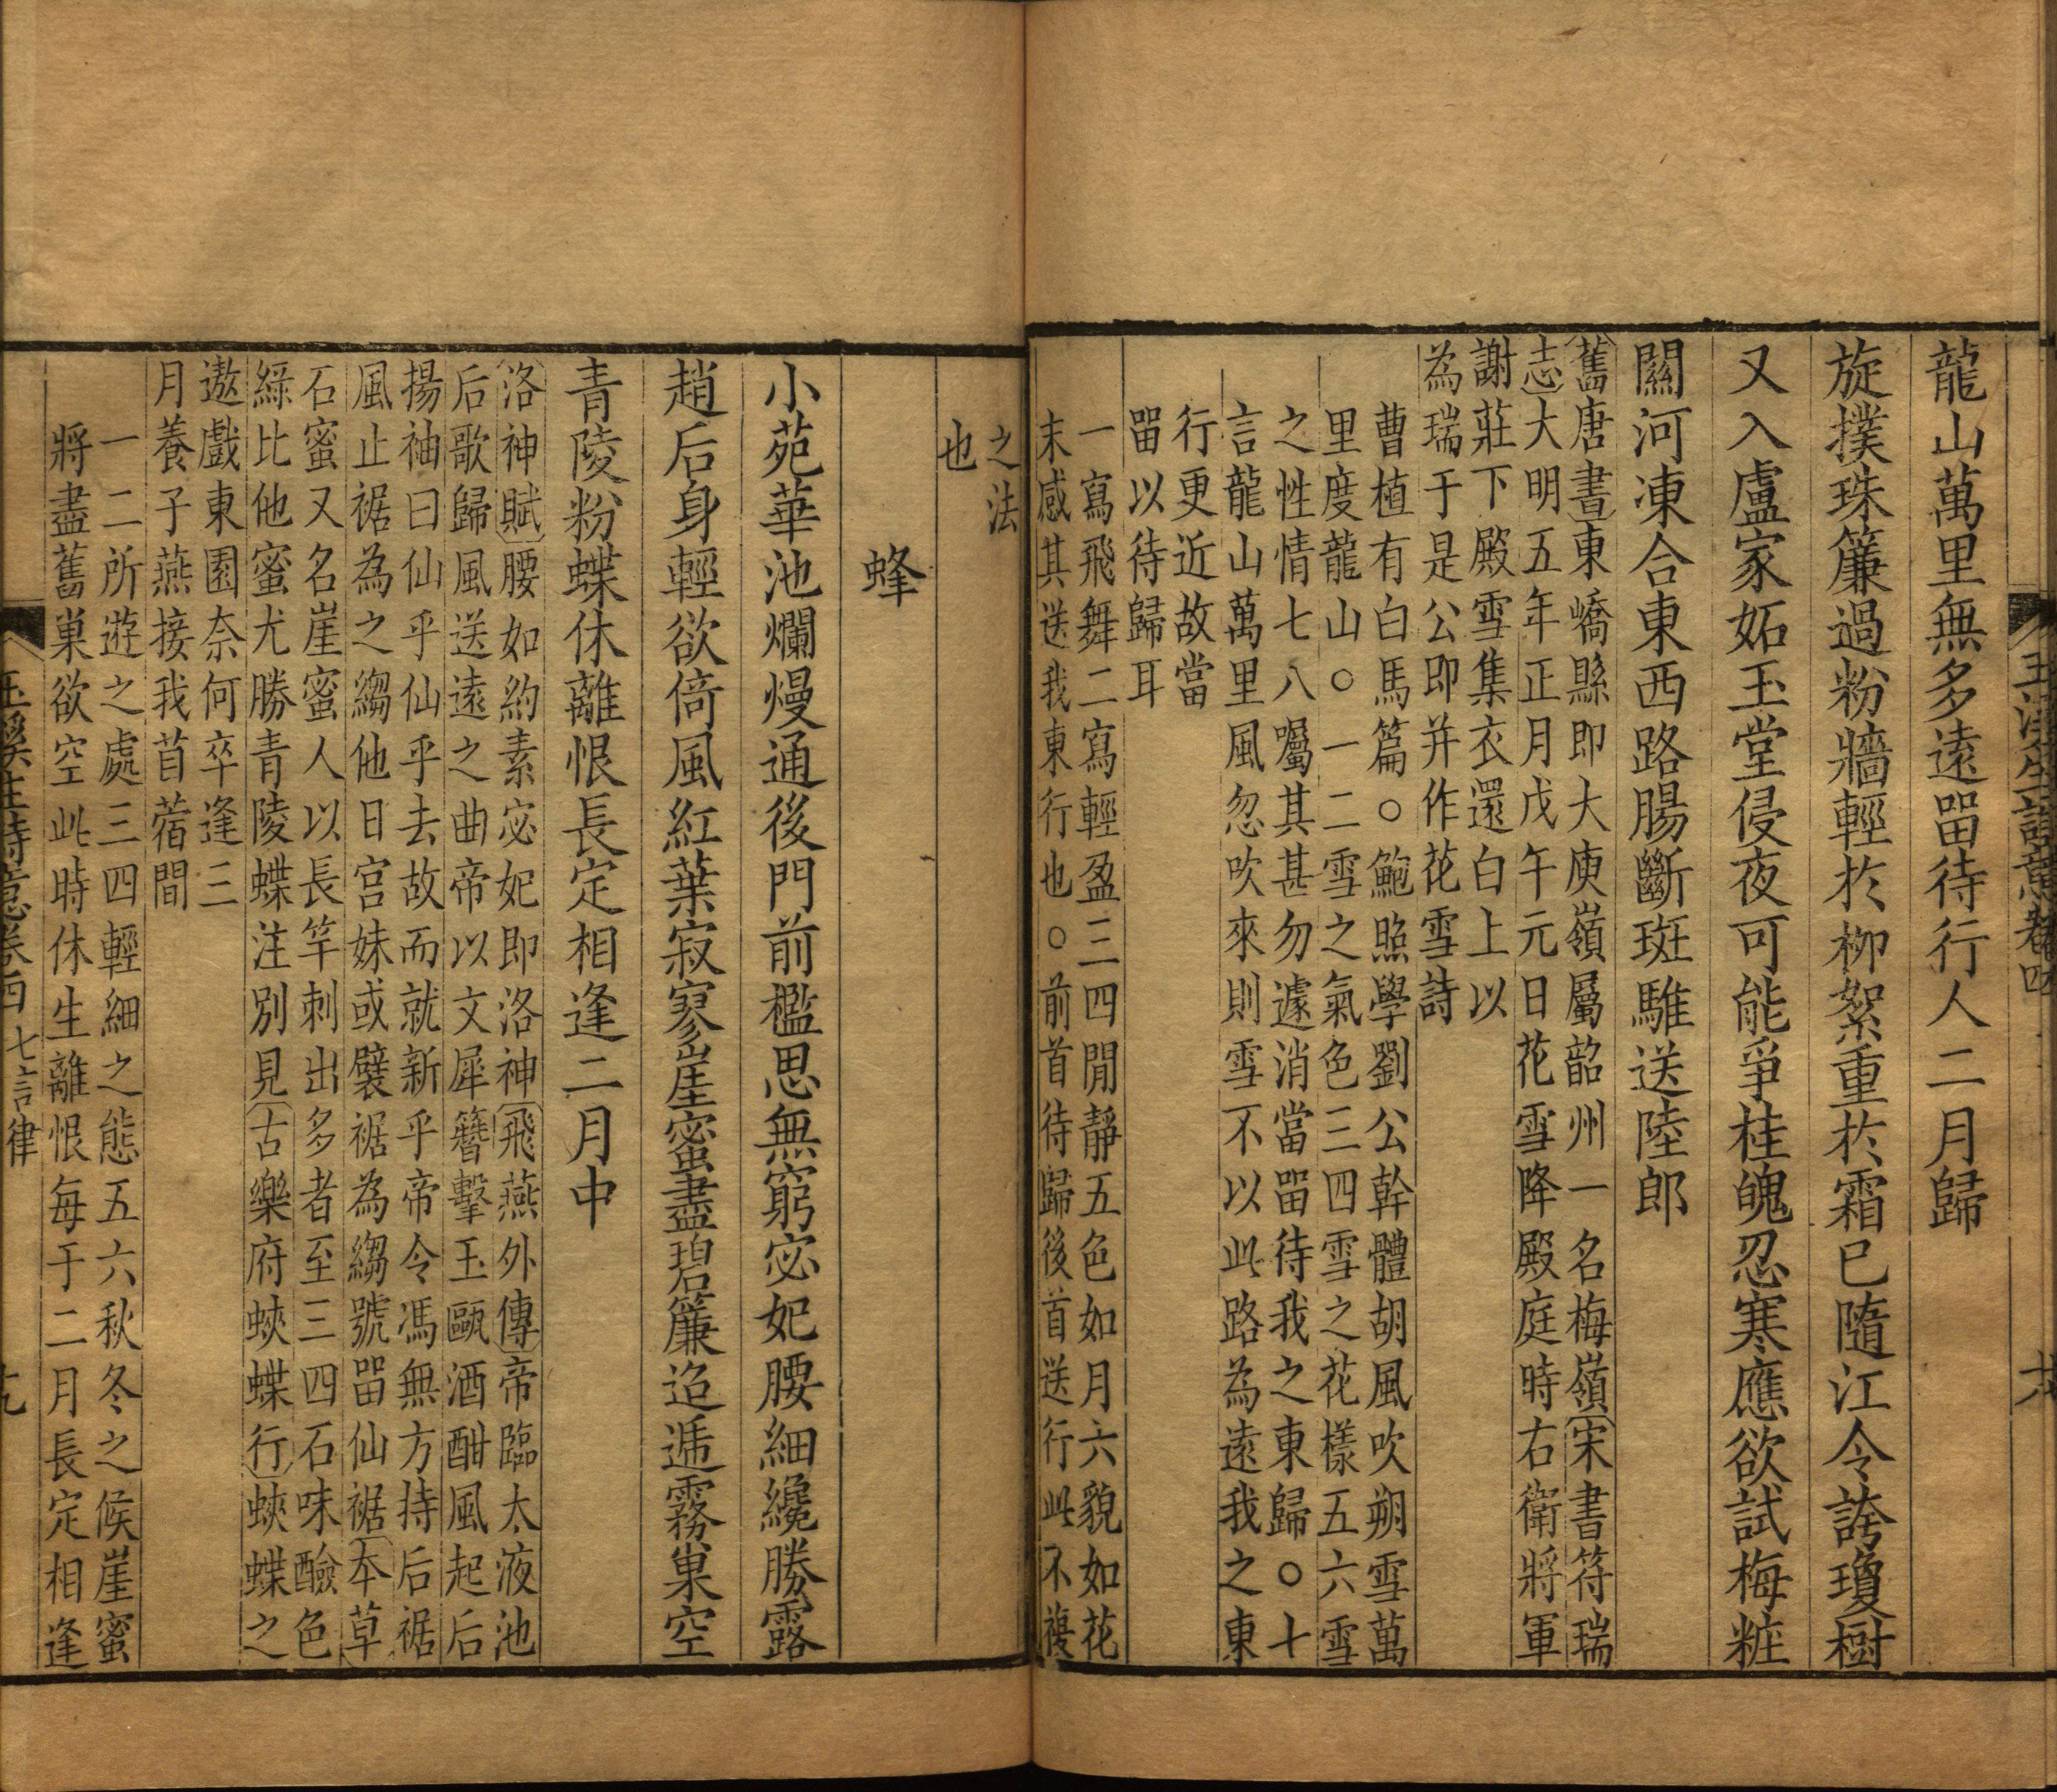 龍山萬里無多遠畱待行人二月歸
旋撲珠簾過粉牆輕於柳絮重於霜已隨江令誇瓊樹
又入盧家妬玉堂侵夜可能爭桂魄忍寒應欲試梅粧
關河凍合東西路腸斷斑騅送陸郎
舊唐書東嶠縣即大庾嶺屬韶州一名梅嶺宋書符瑞
志大明五年正月戊午元日花雪降殿庭時右衛將軍
謝莊下殿雪集衣還白上以
為瑞于是公即并作花雪詩
曹植有白馬篇○鮑照學劉公幹體胡風吹朔雪萬
里度龍山○一二雪之氣色三四雪之花樣五六雪
之性情七八囑其甚勿遽消當畱待我之東歸○十
言龍山萬里風忽吹來則雪不以此路為遠我之東
行更近故當
畱以待歸耳
一寫飛舞二寫輕盈三四閒靜五色如月六貌如花
末感其送我東行也○前首待歸後首送行此不複
之法
也
蜂
小苑華池爛熳通後門前檻思無窮宓妃腰細纔勝露
趙后身輕欲倚風紅葉寂寥崖蜜盡碧簾迢遞霧巢空
青陵粉蝶休離恨長定相逢二月中
洛神賦腰如約素宓妃即洛神飛燕外傳帝臨太液池
后歌歸風送遠之曲帝以文犀簪擊玉甌酒酣風起后
揚袖曰仙乎仙乎去故而就新乎帝令馮無方持后裾
風止裾為之縐他日宮妹或襞裾為縐號畱仙裾本草
石蜜又名崖蜜人以長竿刺出多者至三四石味醶色
綠比他蜜尤勝青陵蝶注別見古樂府蛺蝶行蛺蝶之
遨戲東園奈何卒逢三
月養子燕接我苜蓿間
一二所遊之處三四輕細之態五六秋冬之候崖蜜
將盡舊巢欲空此時休生離恨每于二月長定相逢
玉溪生詩意卷四 七言律